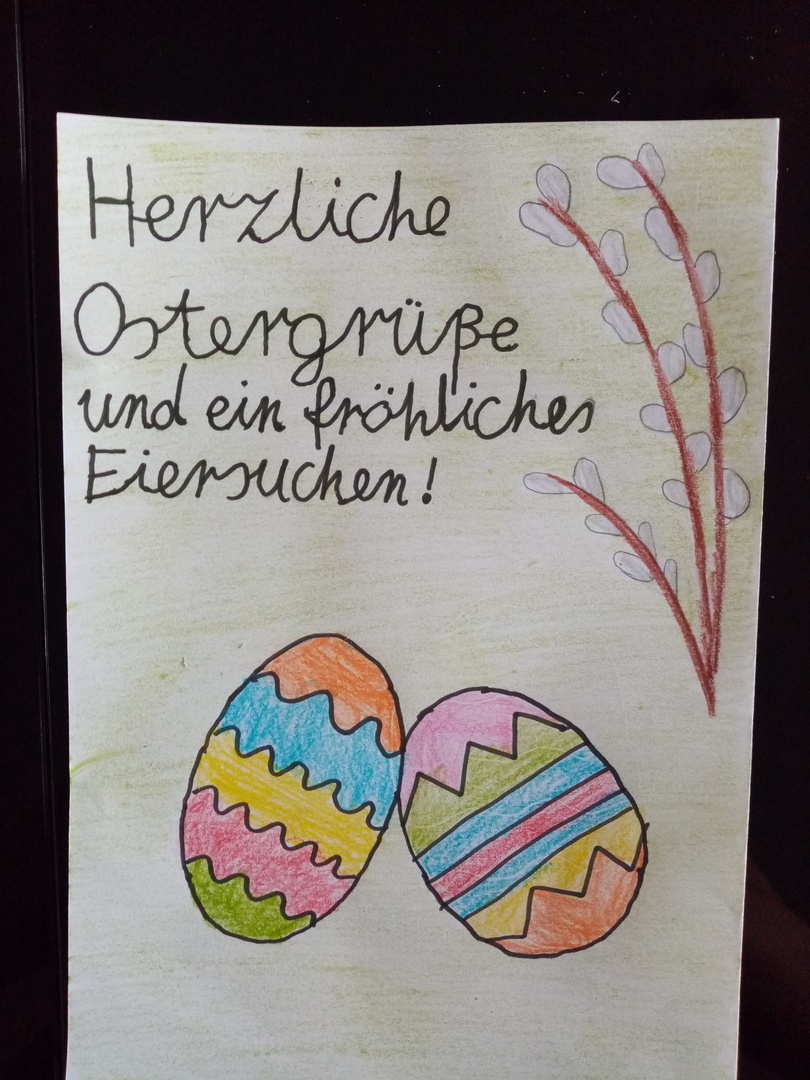 Herzliche
Ostergrüße
und ein fröhliches
Eiersuchen!